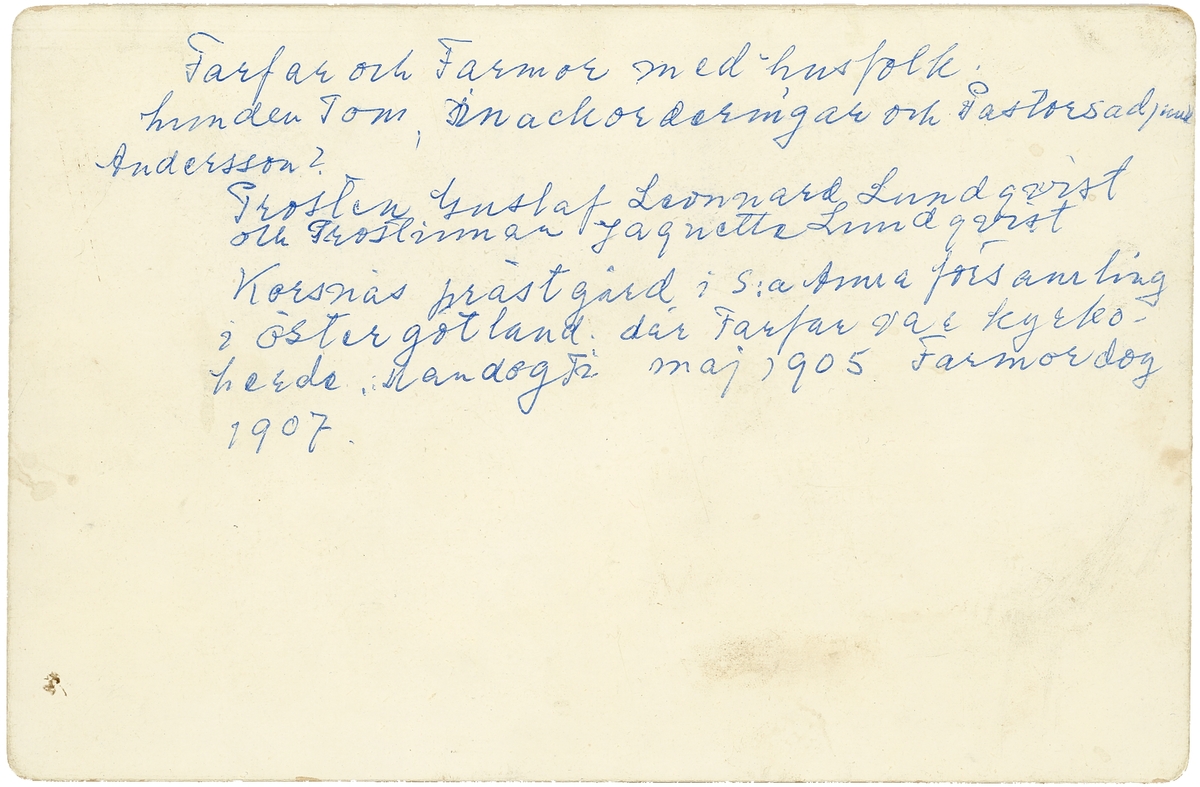 Farfar och Farmor med husfolk.
hunden Tom, Inackorderingar och Pastorsadjunk
Andersson?
Prosten Gustaf Leonnard Lundqvist
och Prostinnan Jaquette Lundqvist
Korsnäs prästgård i S:a Anna församling
i östergötland. där Farfar var kyrko-
herde. Han dog i maj 1905 Farmor dog
1907.